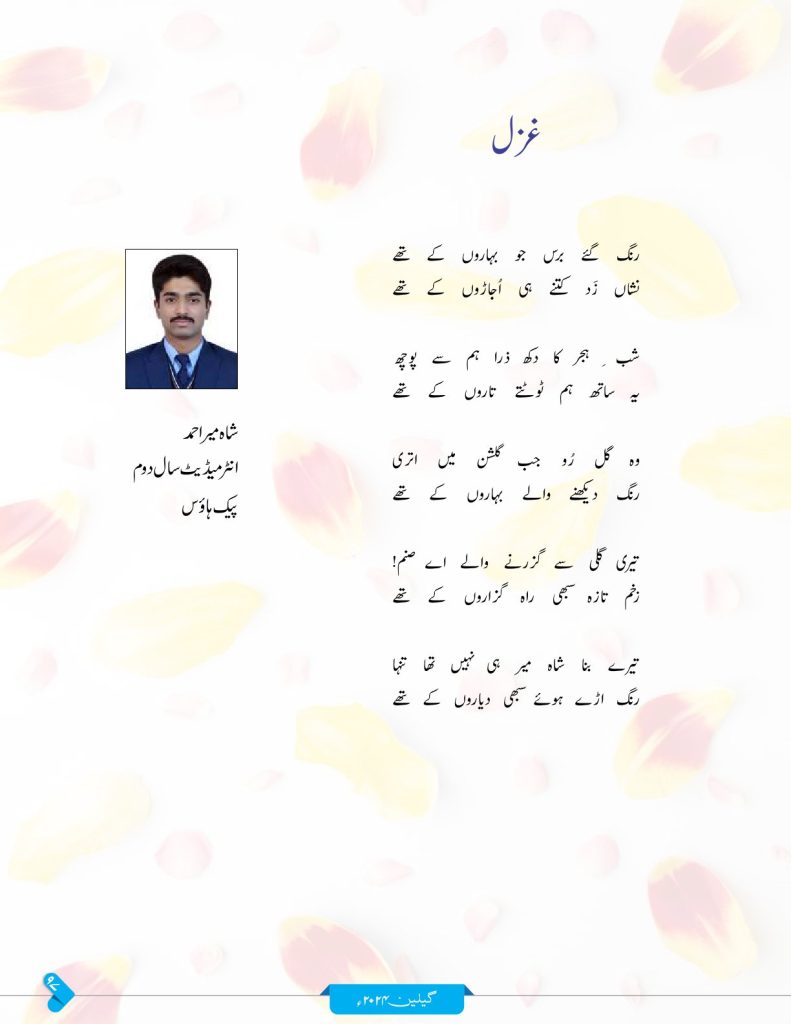 غزل
رنگ گئے برس جو بہاروں کے تھے
نشاں زَد کتنے ہی اُجاڑوں کے تھے
شب ِ ہجر کا دکھ ذرا ہم سے پوچھ
یہ ساتھ ہم ٹوٹتے تاروں کے تھے
وہ گل رُو جب گلشن میں اتری
رنگ دیکھنے والے بہاروں کے تھے
تیری گلی سے گزرنے والے اے صنم!
زخم تازہ سبھی راہ گزاروں کے تھے
تیرے بنا شاہ میر ہی نہیں تھا تنہا
رنگ اڑے ہوئے سبھی دیاروں کے تھے
شاہ میر احمد
انٹرمیڈیٹ سال دوم
پیک ہاؤس
گیلین ۲۰۲۴ء
۹۷